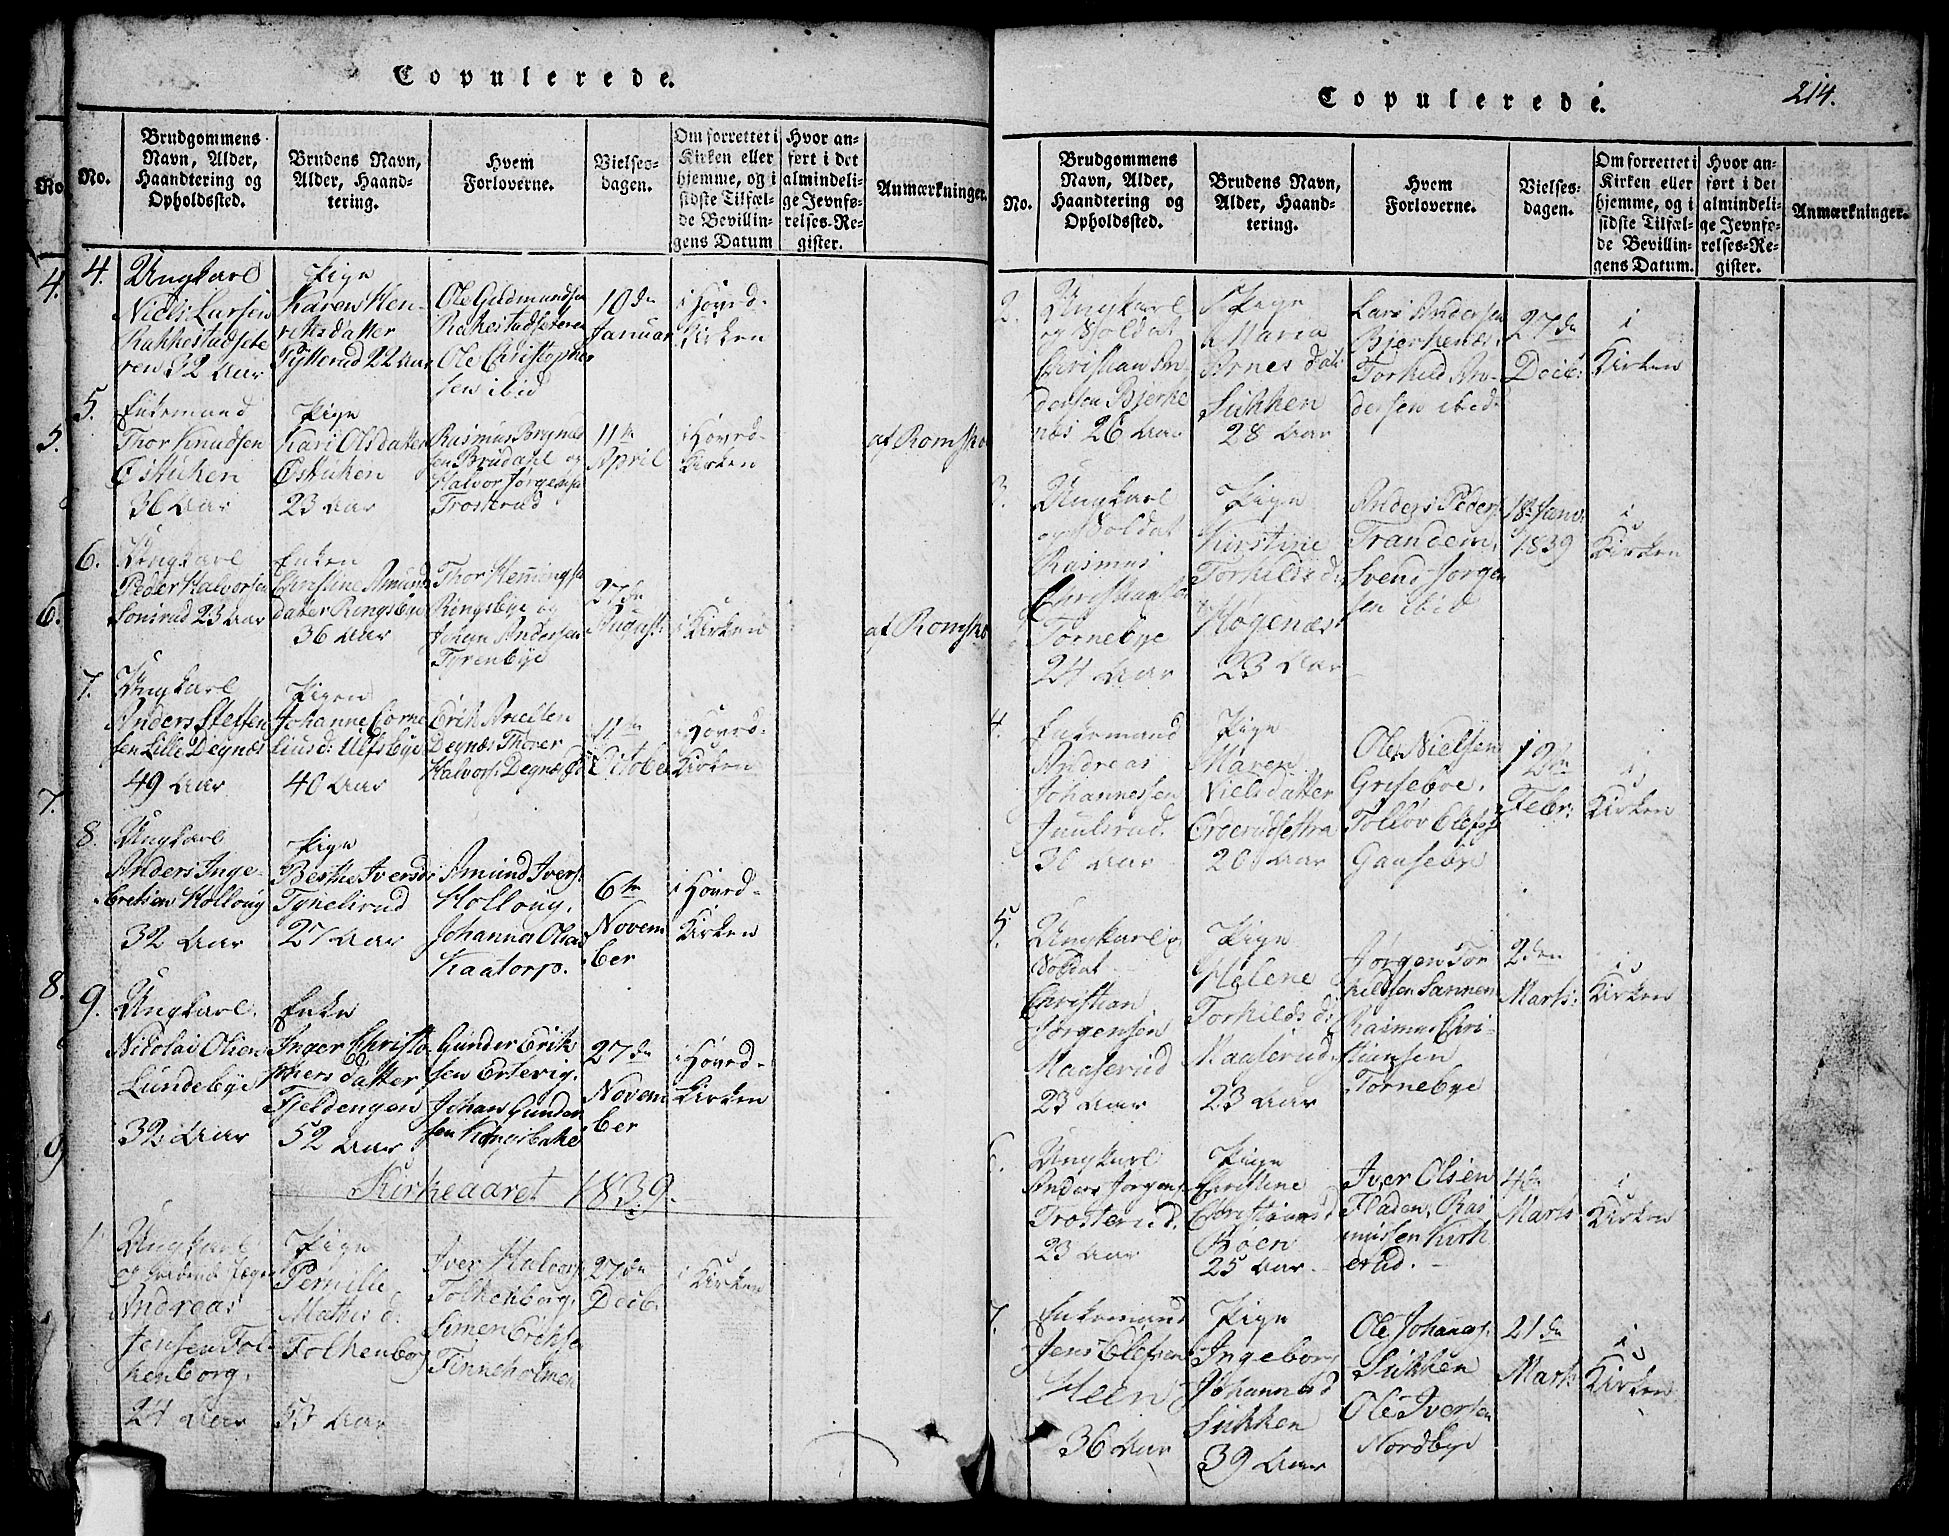 Copulerede.
No.
No.
Brudgommens
Navn, Alder,
Haandtering og
Opholdssted.
Brudens Navn,
Alder, Haand-
tering.
Hvem
Forloverne.
Vielses-
dagen.
Om forrettet i
Kirken eller
hjemme, og i
sidste Tilfæl-
de Bevillin-
gens Datum
Hvor an-
ført i det
almindeli-
ge Jevnfø-
relses-Re-
gister.
Anmærkninger.
4.
5.
6.
7.
8.
9
4.
Ungkarl
Niels Larsen
Rakkestadsete
ren 32 Aar
Pige
Karen Hen-
riksdatter
22 Aar
Ole Guldmundsen
Rakestadseteren
Ole Christopher
sen ibid
10de
Januar
i Hovед-
Kirken
5.
Enkemand
Thor Knudsen
Østuken
36 Aar
Pige
Kari Olsdatter
Østuken
23 Aar
Rasmus Brynes
sen Brudahl og
Halvor Jørgensen
Trosterud
11te
April
i Hoved-
Kirken
af Romsko
6.
Ungkarl
Peder Halvorsen
Sonsrud 23 Aar
Enken
Christine Amunds
datter Ringsbye
36 Aar
Thor Hemmingsen
Ringsbye og
Johan Andersen
Tyrenbye
27de
August
i Kirken
af Romsko
7.
Ungkarl
Anders Steffen
sen Lille Degnæs
49 Aar
Pigen
Johanne Corne
liusd: Ulfsbye
40 Aar
Erik
Degnæs Thorer
Halvors: Degnæs
11te
October
i Hoved-
Kirken
8.
Ungkarl
Anders Inge-
bretsen Kollo
32 Aar
Pige
Berthe Iversdr
Tynelsrud
27 Aar
Amund Ivers.
Johannes Olsen
Kaatorp.
6te
Novem
ber
i Hoved-
Kirken
9.
Ungkarl
Nicolai Olsen
Lundebye
32 Aar
Enke
Inger Christo-
phersdatter
Fjeldengen
52 Aar
Gunder Erik
sen Ertevig.
Johan Gunder
sen Kongsbakke
27de
Novem
ber
i Hoved-
Kirken
Kirkeaaret 1839.
1
Ungkarl
Andreas
Jensen Fol-
kenborg.
24 Aar
Pige
Pernille
Mathis d.
Folkenborg
53 Aar
Iver Halvors
Folkenborg.
Simen Erichsen
Tenneholmen
27de
Decb.
i Kirken
Copulerede.
214.
No.
Brudgommens
Navn, Alder,
Haandtering og
Opholdssted.
Brudens Navn,
Alder, Haand-
tering.
Hvem
Forloverne.
Vielses-
dagen.
Om forrettet i
Kirken eller
hjemme, og i
sidste Tilfæl-
de Bevillin-
gens Datum.
Hvor an-
ført i det
almindeli-
ge Jevnfø-
relses-Re-
gister.
Anmærkninger.
2.
Ungkarl
og Soldat
Christian An-
dersen Bjerke
næs 26 Aar
Pige
Maria
Arnes dat:
Sukken
28 Aar
Lars Andersen
Bjerkenæs.
Torkild An-
dersen ibid
27de
Decb:
i
Kirken
3.
Ungkarl
og Soldat
Rasmus
Christiansen
Tornebye
24 Aar
Pige
Kirstine
Torkilds d.
Høgenæs
23 Aar
Anders Peders.
Trandem,
Svend Jørgen
sen ibid
18. Janr.
1839
i
Kirken
4.
Enkemand
Andreas
Johannessen
Juulsrud.
36 Aar
Pige
Maren
Nielsdatter
20 Aar
Ole Nielsen
Griseboe.
Gausebye
12te
Febr:
i
Kirken
5.
Ungkarl og
Soldat
Christian
Jørgensen
Maaserud
23 Aar
Pige
Helene
Torkilds d:
Maaserud
23 Aar
Jørgen Tor
kildsen Sannem
Rasmus Chri-
stiansen
Tornebye
2den
Marts.
i
Kirken
6.
Ungkarl
Anders Jørgens.
Trosterud.
23 Aar
Pige
Christine
Christians d
Moen
25 Aar
Iver Olsen
Fladen, Ras
mussen Kirk
erud.
4de
Marts
i
Kirken
7.
Enkemand
Jens Olefsen
Heen
36 Aar
Pige
Ingeborg
Johannesd
Sukken
39 Aar
Ole Johanes.
Sukken
Ole Iversen
Nordbye
21de
Marts
i
Kirken